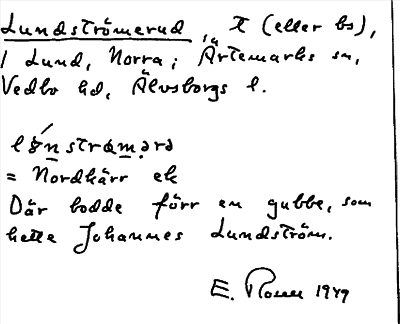 Lundströmerud, t (eller bs),
i Lund, Norra; Ärtemarks sn,
Vedbo hd, Älvsborgs l.
= Nordkärr ek
Där bodde förr en gubbe, som
hette Johannes Lundström.
E. 1949